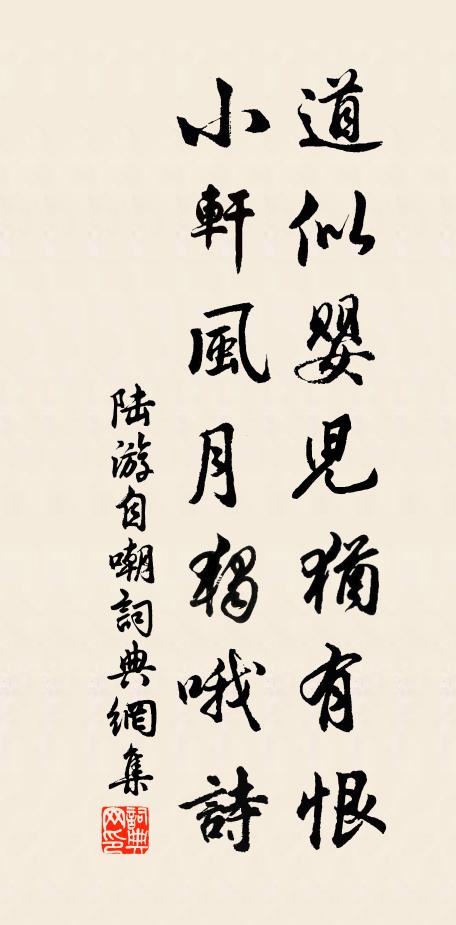 道似嬰児猶有恨
小軒風月獨哦詩
陆游自嘲詞典網集
詞典網印